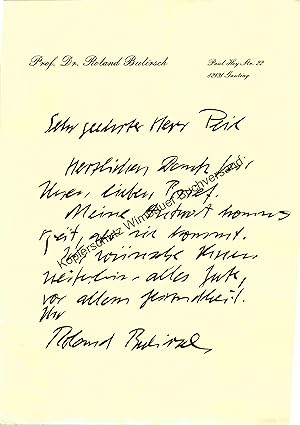 Prof. Dr. Roland Bulirsch
Paul Hey Str. 22
82131 Gauting
Sehr geehrter Herr
Herzlichen Dank für
Ihren lieben Brief.
Meine Antwort kommt
aber sie kommt.
Ich wünsche Ihnen
weiterhin alles Gute,
vor allem Gesundheit.
Ihr
Roland Bulirsch
Kopierschutz Wimbauer Buchversand